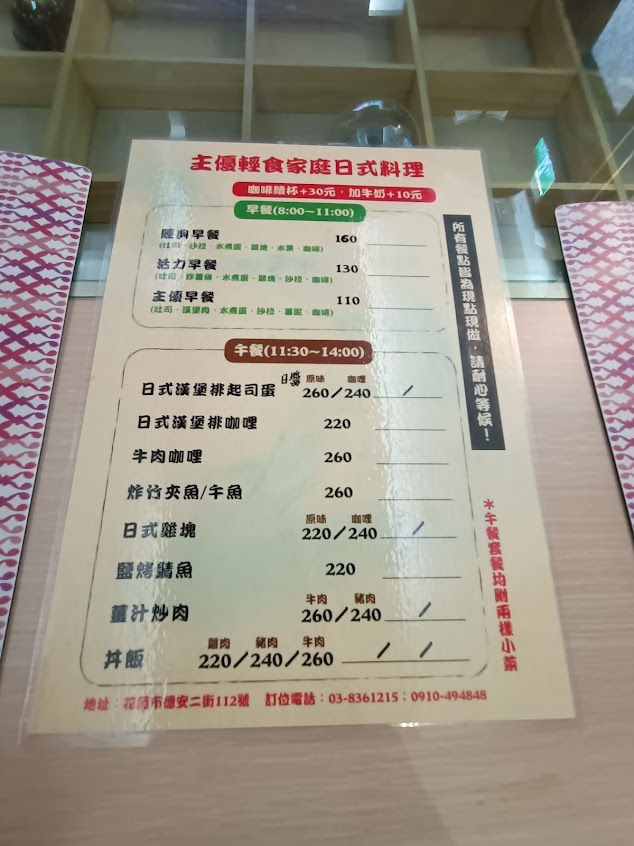 主優輕食家庭日式料理
咖啡續杯+30元．加牛奶+10元
早餐(8:00~11:00)
早餐 160
(吐司．沙拉．水煮蛋．雞塊．水果．咖啡)
活力早餐 130
(吐司．炸薯條．水煮蛋．雞塊．沙拉．咖啡)
主優早餐 110
(吐司．漢堡肉．水煮蛋．沙拉．薯泥．咖啡)
所有餐點皆為現點現做．請耐心等候！
午餐(11:30~14:00)
日醬 原味 咖哩
日式漢堡排起司蛋 260/240 /
日式漢堡排咖哩 220
牛肉咖哩 260
炸竹夾魚/午魚 260
原味 咖哩
日式雞塊 220/240 /
鹽烤鯖魚 220
牛肉 豬肉
薑汁炒肉 260/240 /
雞肉 豬肉 牛肉
丼飯 220/240/260 / /
＊午餐套餐均附兩樣小菜
地址：花蓮市德安二街112號 訂位電話：03-8361215；0910-494848